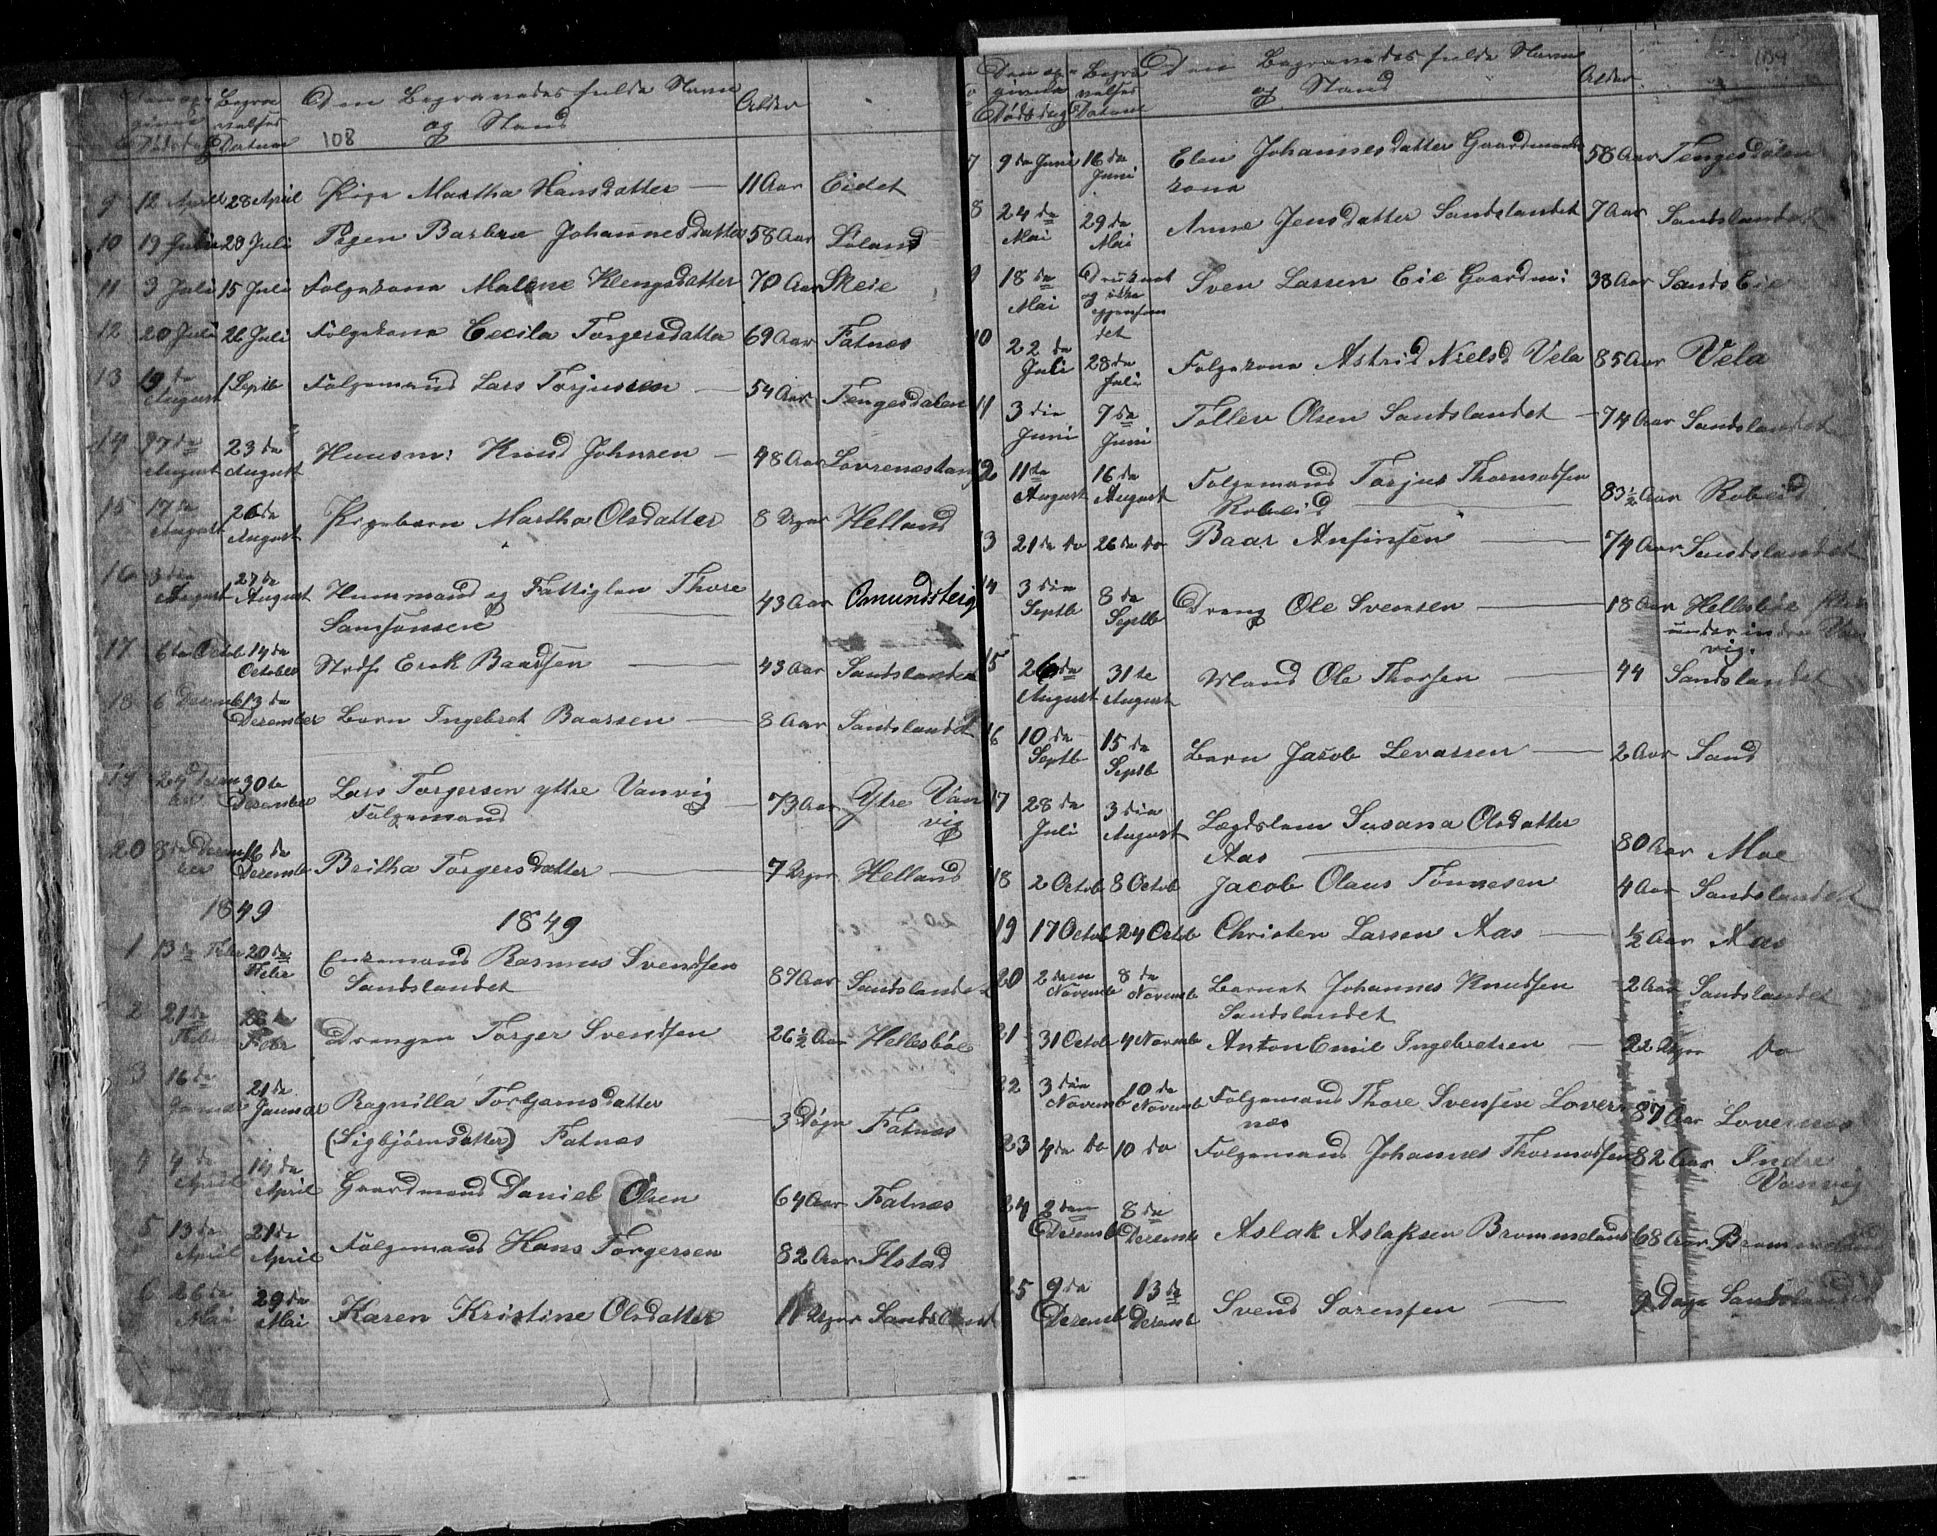 Begra-
velses
Datum
Den Begravedes fulde Navn
og Stand
Alder
108
9 12 April 28 April Pige Martha Hansdatter — 11 Aar Eidet
10 19 Juli 28 Juli Pigen Barbra Johannesdatter 58 Aar Löland
11 3 Juli 15 Juli Folgekona Malene Klengsdatter 70 Aar Skeie
12 20 Juli 26 Juli Folgekona Cecila Torgersdatter 69 Aar Fatnæs
13 19 de August 1 Septb Folgemand Lars Torjussen — 54 Aar Tengesdalen
14 17 de August 23 de August Huusm: Knud Johnsen — 48 Aar
15 17 de August 26 de August Pigebarn Martha Olsdatter 8 Uger Helland
16 3 die August 27 de August Husmand og Fattiglem Thore
Samsonsen 43 Aar Omundsteig
17 6 te Octob 14 de October Erik Baardsen — 43 Aar Sandslandet
18 6 Decemb 13 de December Barn Ingebret Baarsen — 8 Aar Sandslandet
19 30 te December Lars Torgersen yttre Vanvig
Folgemand 73 Aar Ytre Van
vig
20 8 de Decem
ber 16 de Decemb Britha Torgersdatter — 7 Uger Helland
1849 1849
1 13 de Febr 20 de Febr Enkemand Rasmus Svendsen
Sandslandet 87 Aar Sandslandet
2 21 de Febr 28 de Febr Drengen Torger Svendsen 26 ½ Aar Hellesböe
3 16 de Januar 21 de Januar Ragnilla Torbjørnsdatter
(Sigbjörnsdatter) Fatnæs 3 Dögn Fatnæs
4 4 de April 14 de April Gaardmand Daniel Olsen 64 Aar Fatnæs
5 13 de April 21 de April Folgemand Hans Torgersen 82 Aar Ilstad
6 26 de Mai 29 de Mai Karen Kristine Olsdatter 11 Uger Sandslandet
Den op-
givene
Dødsdag
Begra-
velses
Datum
Den Begravedes fulde Navn
og Stand
Alder
109
7 9 de Juni 16 de Juni Elen Johannesdatter Gaardmands
kone 58 Aar Tengesdalen
8 24 de Mai 29 de Mai Anne Jensdatter Sandslandet 7 Aar Sandslandet
9 18 de Mai Druknet
og ikke
gjenfun
det Sven Larsen Eie Gaardm: 38 Aar Sands Eie
10 22 de Juli 28 de Juli Folgekona Astrid Nielsd Vela 85 Aar Vela
11 3 die Juni 7 de Juni Tollev Olsen Sandslandet — 74 Aar Sandslandet
12 11 te August 16 de August Folgemand Torjus Thormodsen
Robeid — 83 ½ Aar Robeid
13 21 de do 26 de do Baar Ansinsen — 74 Aar Sandslandet
14 3 die Septb 8 de Septb Dreng Ole Svensen — 18 Aar Hellesböe
under indre Van
vig.
15 26 de August 31 te August Mand Ole Thorsen — 44 Sandslandet
16 10 de Septb 15 de Septb Barn Jacob Levarsen — 2 Aar Sand
17 28 de Juli 3 die August Lægdslem Susana Olsdatter
Aas — 80 Aar Moe
18 2 Octob 8 Octob Jacob Olaus Tönnesen 4 Aar Sandslandet
19 17 Octob 24 Octob Christen Larsen Aas — ½ Aar Aas
20 2 den Novemb 8 de Novemb Barnet Johannes Knudsen
Sandslandet 2 Aar Sandslandet
21 31 Octob 4 Novemb Anton Emil Ingebretsen — 22 Uger do
22 3 die Novemb 10 de Novemb Folgemand Thore Svensen Lovere
næs 87 Aar Lovernæs
23 4 de do 10 do Folgemand Johannes Thormodsen 82 Aar Indre
Vanvig
24 2 den Decemb 8 de Decemb Aslak Aslaksen Brommeland 68 Aar Brommeland
25 9 de Decemb 13 de Decemb Svend Sorensen — 9 Dage Sandslandet